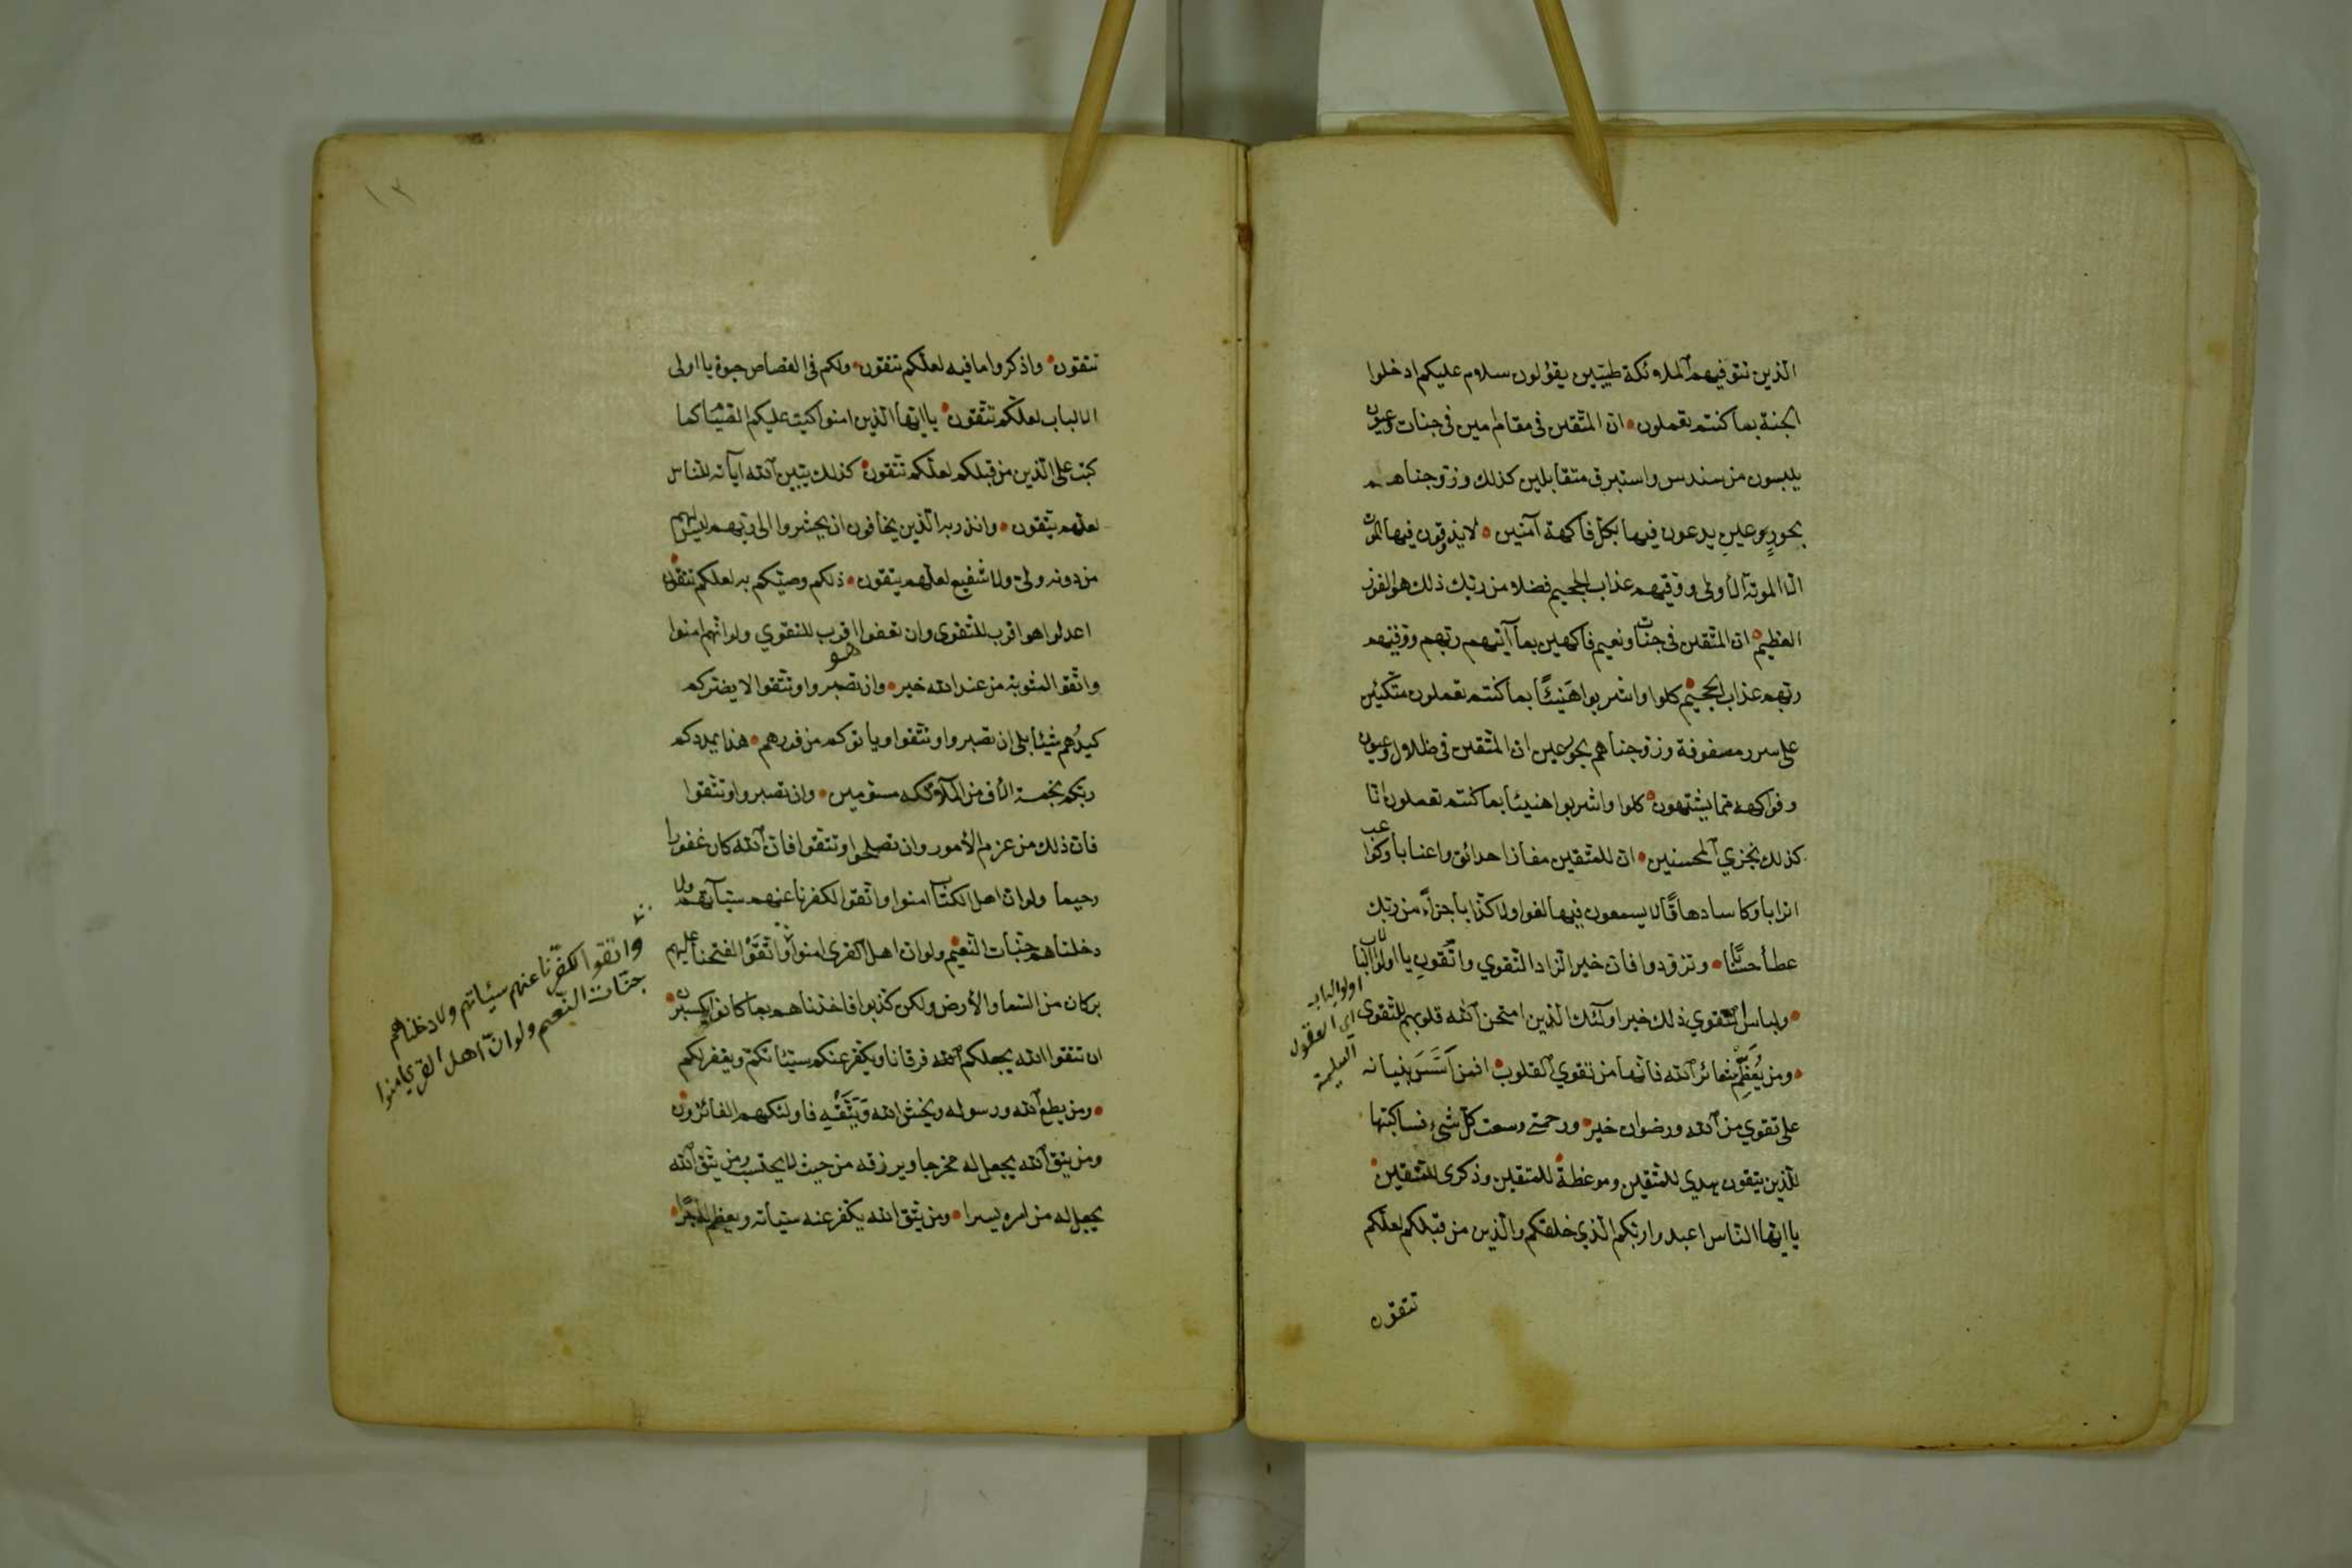 الذين تتوفيهم الملائكة طيبين يقولون سلام عليكم ادخلوا
الجنة بما كنتم تعملون ان المتقين فى مقام امين فى جنات وعيون
يلبسون من سندس واستبرق متقابلين كذلك وزوجناهم
بحور عين يدعون فيها بكل فاكهة آمنين لا يذوقون فيها الموت
الا الموتة الأولى ووقيهم عذاب الجحيم فضلا من ربك ذلك هو الفوز
العظيم ان المتقين فى جنات ونعيم فاكهين بما آتيهم ربهم ووقيهم
ربهم عذاب الجحيم كلوا واشربوا هنيئًا بما كنتم تعملون متكئين
على سرر مصفوفة وزوجناهم بحور عين ان المتقين فى ظلال وعيون
وفواكه مما يشتهون كلوا واشربوا هنيئا بما كنتم تعملون انا
كذلك نجزي المحسنين ان للمتقين مفازا حدائق واعنابا وكواعب
اترابا وكاسا دهاقًا لا يسمعون فيها لغوا ولا كذابا جزاء من ربك
عطأ حسابًا وتزودوا فان خير الزاد التقوي واتقون يا اولوا الالباب
ولباس التقوي ذلك خير اولئك الذين امتحن الله قلوبهم للتقوى
اولوا الباب
اي العقول
السليمة
ومن يُعَظِّم شعائر الله فانها من تقوي القلوب افمن اَسَّسَ بنيانه
على تقوي من الله ورضوان خير ورحمتى وسعت كل شىء فساكتبها
للذين يتقون هدي للمتقين وموعظة للمتقين وذكرى للمتقين
يا ايها الناس اعبدوا ربكم الذي خلقكم والذين من قبلكم لعلكم
تتقون
١٢
تتقون واذكروا ما فيه لعلكم تتقون ولكم فى القصاص حيوة يا اولى
الالباب لعلكم تتقون يا ايها الذين امنوا كتب عليكم الصيام كما
كتب على الذين من قبلكم لعلكم تتقون كذلك يبين الله آياته للناس
لعلهم يتقون وانذر به الذين يخافون ان يحشروا الى ربهم ليس لهم
من دونه ولى ولا شفيع لعلهم يتقون ذلكم وصيكم به لعلكم تتقون
اعدلوا هو اقرب للتقوى وان تعفوا اقرب للتقوي ولو انهم امنوا
هو
واتقو المثوبة من عند الله خير وان تصبروا وتتقوا لا يضركم
كيدُهم شيئا بلى ان تصبروا وتتقوا ويا توكم من فورهم هذا يمددكم
ربكم بخمسة الأف من الملائكة مسومين وان تصبروا وتتقوا
فان ذلك من عزم الأمور وان تصلحوا وتتقوا فان الله كان غفورا
رحيما ولو ان اهل الكتاب امنوا واتقوا لكفرنا عنهم سيآتهم ولا
دخلناهم جنات النعيم ولو ان اهل القرى امنوا واتقوا لفتحنا عليهم
بركان من السما والأرض ولكن كذبوا فاخذناهم بما كانوا يكسبون
ان تتقوا الله يجعلكم الله فرقانا ويكفر عنكم سيئاتكم ويغفر لكم
ومن يطع الله ورسوله ويخش الله وَيَتَّقْهِ فاولئكهم الفائزون
ومن يتق الله يجعل له مخرجا ويرزقه من حيث لا يحتسب ومن يتق الله
يجعل له من امره يسرا ومن يتق الله يكفر عنه سيأته ويعظم له اجرًا
واتقوا لكفّرنا عنهم سيئاتهم ولا دخلناهم
جنات النعيم ولو انّ اهل القري امنوا